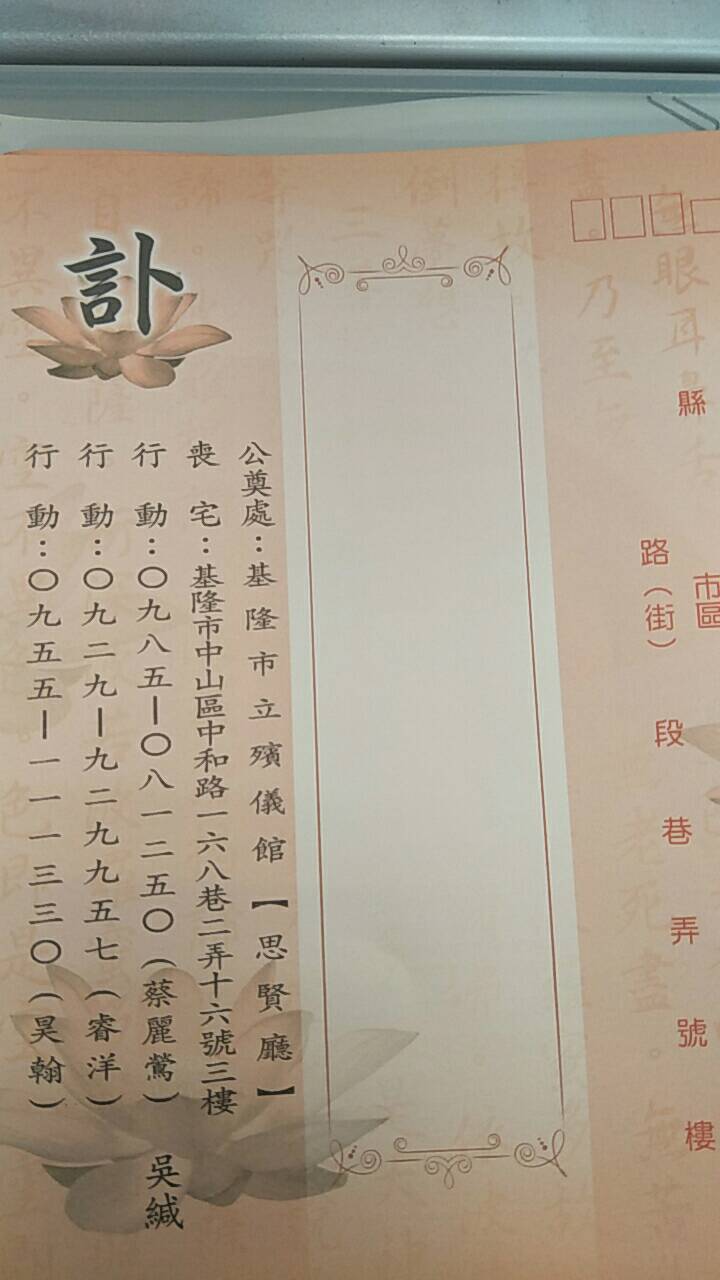 縣
市區
路（街）
段
巷
弄
號
樓
公奠處：基隆市立殯儀館【思賢廳】
喪宅：基隆市中山區中和路一六八巷二弄十六號三樓
行動：〇九八五－〇八一二五〇（蔡麗鶯）
行動：〇九二九－九二九九五七（睿洋）
行動：〇九五五－一一一三三〇（昊翰）
吳緘
訃